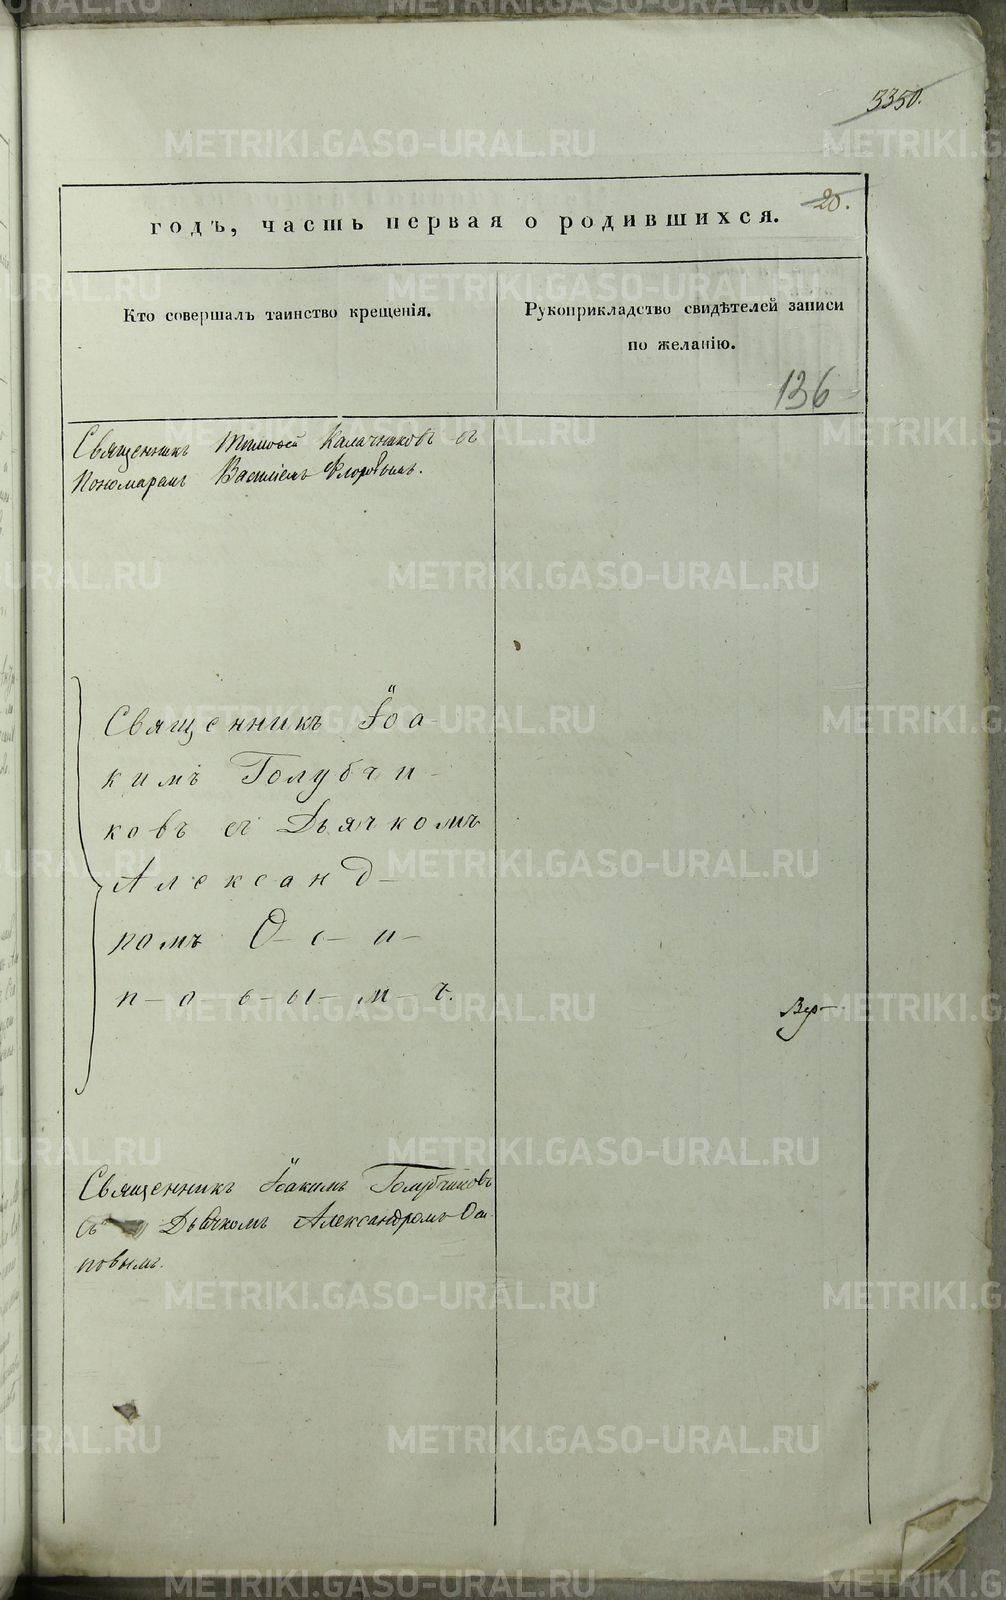 3350.
20.
годъ, часть первая о родившихся.
Кто совершалъ таинство крещенія.
Рукоприкладство свидѣтелей записи
по желанію.
136
Священникъ Тимофей Калачниковъ съ
Пономаремъ Василіемъ Флоровымъ.
Священникъ Іоа-
кимъ Голубчи-
ковъ съ Дьячкомъ
Александ-
ромъ О-с-и-
п-о-в-ы-м-ъ.
Вер-
Священникъ Іоакимъ Голубчиковъ
съ Дьячкомъ Александромъ Оси
повымъ.
METRIKI.GASO-URAL.RU